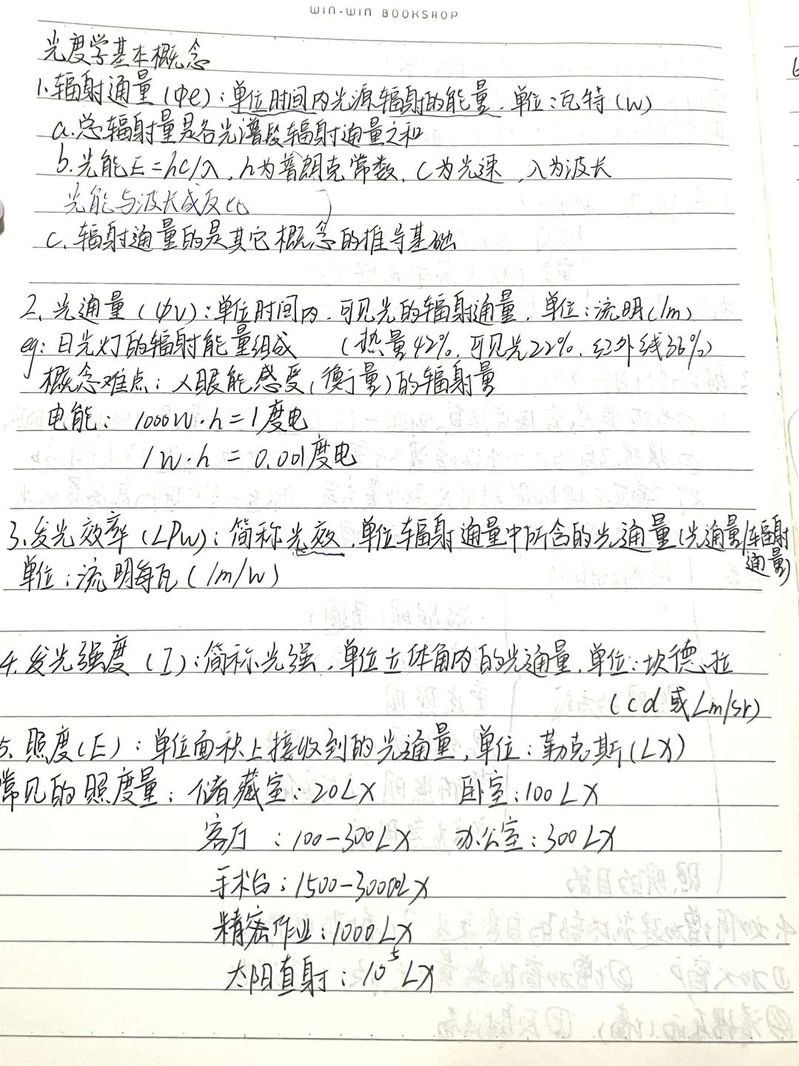 WIN-WIN BOOKSHOP
光度学基本概念
1.辐射通量(φe):单位时间内光源辐射的能量.单位:瓦特(W)
a.总辐射量是各光谱段辐射通量之和
b.光能E=hc/λ,h为普朗克常数,C为光速,λ为波长
光能与波长成反比
c.辐射通量的是其它概念的推导基础
2.光通量(φv):单位时间内.可见光的辐射通量,单位:流明(lm)
eg:日光灯的辐射能量组成 (热量42%,可见光22%,红外线36%)
概念难点:人眼能感受(衡量)的辐射量
电能:1000W·h=1度电
1W·h=0.001度电
3.发光效率(LPW):简称光效,单位辐射通量中所含的光通量(光通量/辐射
通量)
单位:流明每瓦(lm/w)
4.发光强度(I):简称光强,单位立体角内的光通量,单位:坎德拉
(cd或Lm/sr)
5.照度(E):单位面积上接收到的光通量,单位:勒克斯(LX)
常见的照度量:储藏室:20LX 卧室:100LX
客厅:100-300LX 办公室:300LX
手术台:1500-3000LX
精密作业:1000LX
太阳直射:10⁵LX